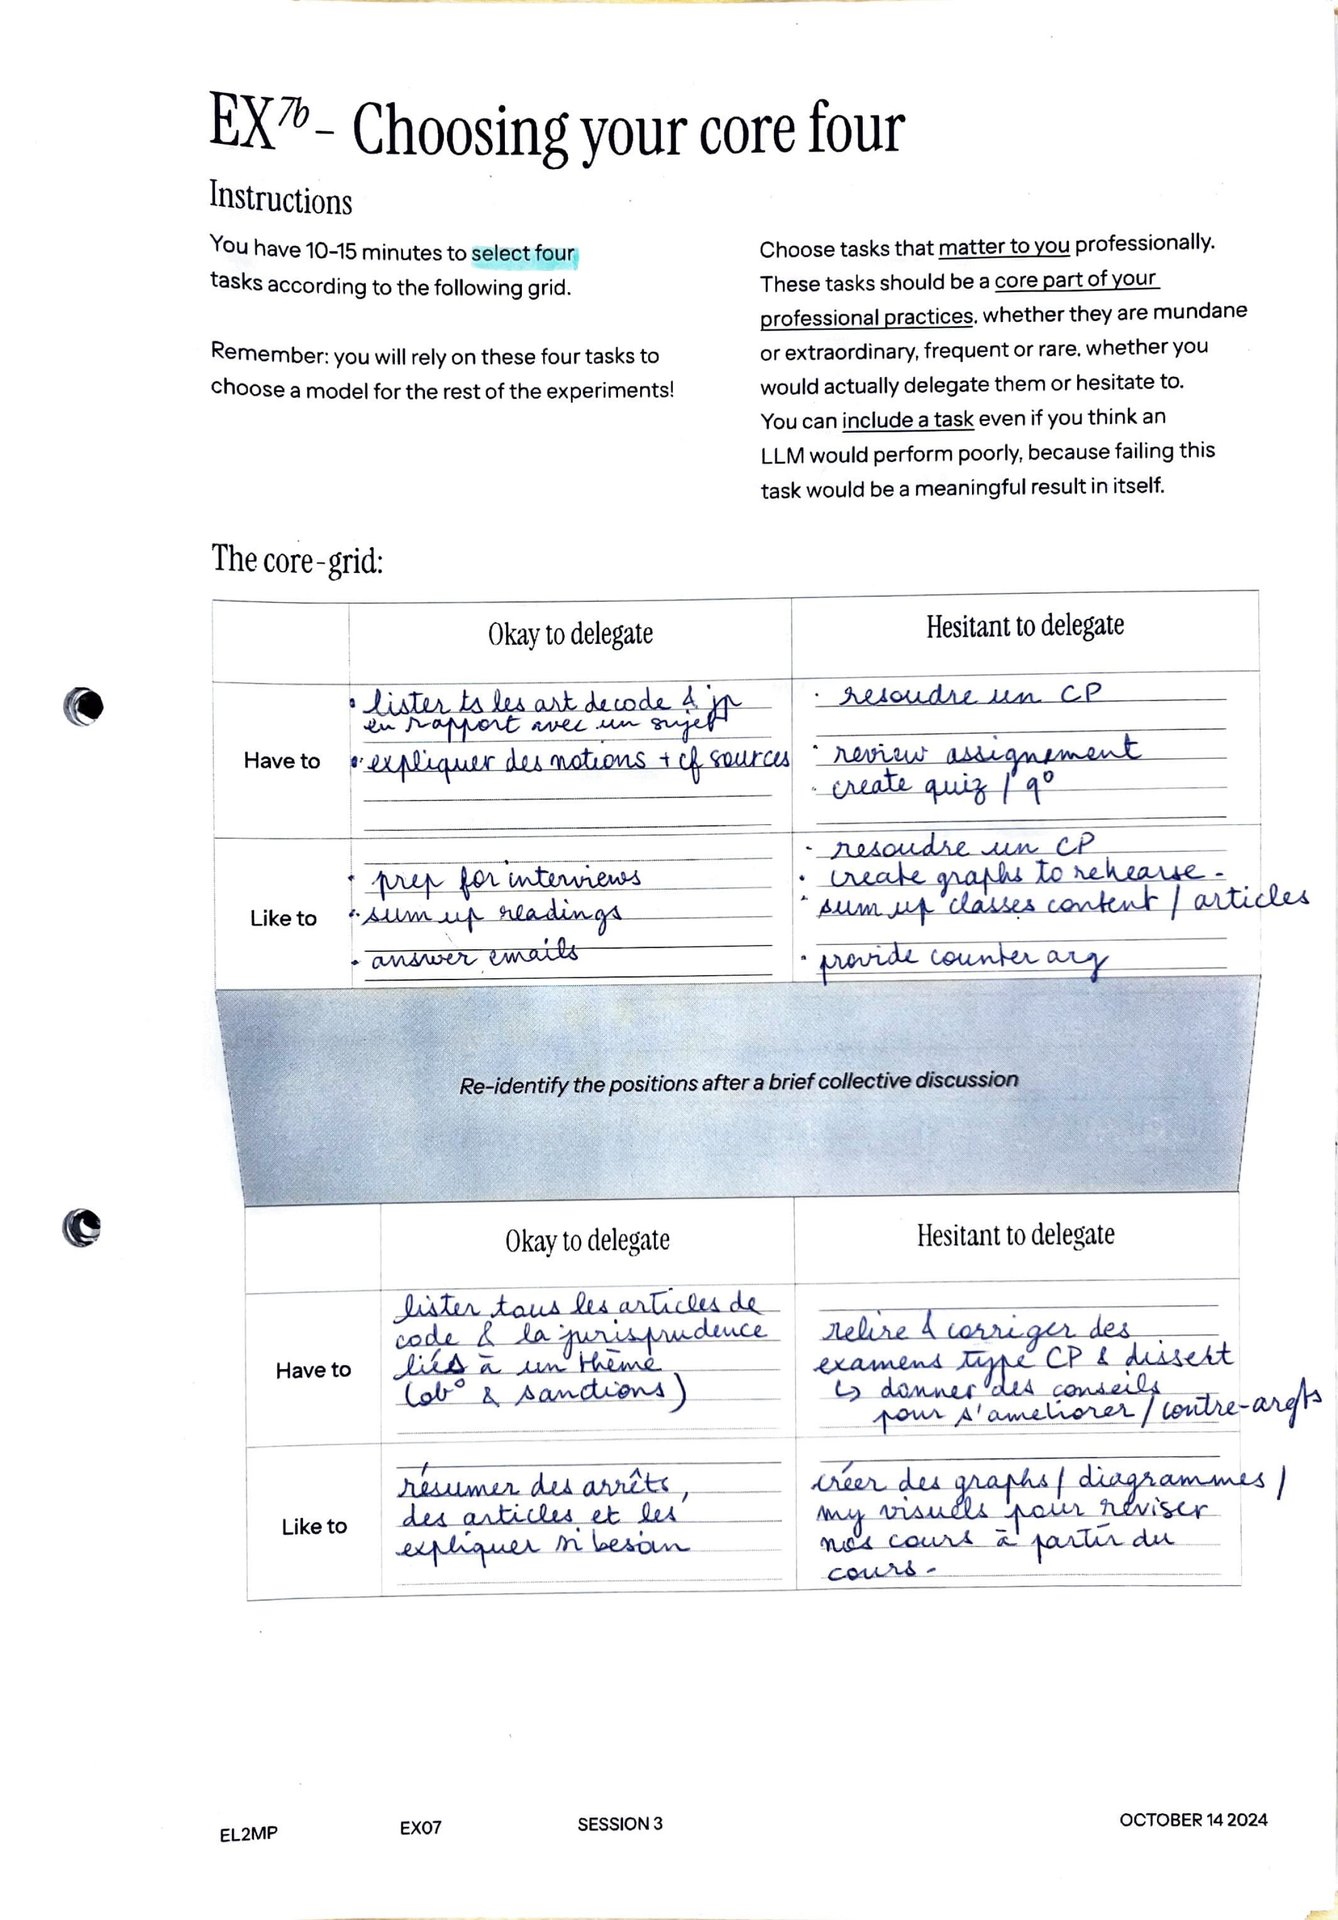 EX7b – Choosing your core four
Instructions
You have 10-15 minutes to select four
tasks according to the following grid.
Remember: you will rely on these four tasks to
choose a model for the rest of the experiments!
Choose tasks that matter to you professionally.
These tasks should be a core part of your
professional practices, whether they are mundane
or extraordinary, frequent or rare, whether you
would actually delegate them or hesitate to.
You can include a task even if you think an
LLM would perform poorly, because failing this
task would be a meaningful result in itself.
The core-grid:
Okay to delegate
Hesitant to delegate
Have to
• lister ts les art de code & jp
en rapport avec un sujet
• expliquer des notions + cf sources
· resoudre un CP
· review assignement
· create quiz / q°
Like to
· prep for interviews
· sum up readings
· answer emails
· resoudre un CP
· create graphs to rehearse -
· sum up classes content / articles
· provide counter arg
Re-identify the positions after a brief collective discussion
Okay to delegate
Hesitant to delegate
Have to
lister tous les articles de
code & la jurisprudence
liés à un thème
(ob° & sanctions)
relire & corriger des
examens type CP & dissert
↳ donner des conseils
pour s'ameliorer / contre-argts
Like to
résumer des arrêts,
des articles et les
expliquer si besoin
créer des graphs / diagrammes /
my visuels pour réviser
nos cours à partir du
cours -
EL2MP
EX07
SESSION 3
OCTOBER 14 2024